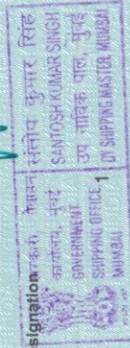 signation
कार्यालय, मुंबई
GOVERNMENT
SHIPPING OFFICE, 1
MUMBAI
संतोष कुमार सिंह
SANTOSH KUMAR SINGH
उप नाविक पाल, मुंबई
DY SHIPPING MASTER, MUMBAI